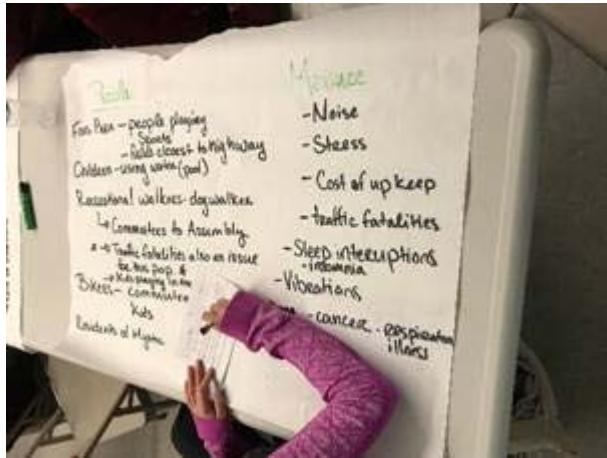 People
Foss Park - people playing
Sports
- fields closest to highway
Children - using water (pool)
Recreational walkers - dogwalker
↳ Commuters to Assembly
→ Traffic fatalities also an issue
for this pop. &
→ Kids playing in the
Bikers - commuter
Kids
Residents of Mystic
Menace
- Noise
- Stress
- Cost of upkeep
- traffic fatalities
- Sleep interuptions
- insomnia
- Vibrations
- cancer - respiration
illness